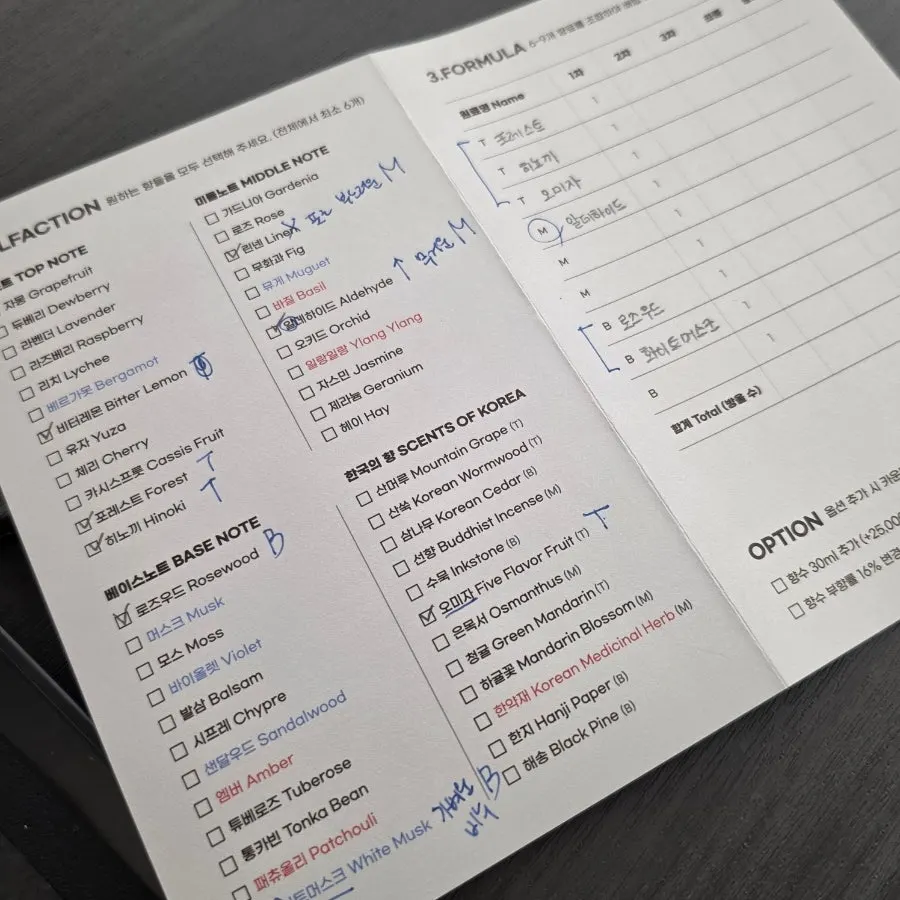 LFACTION 원하는 향들을 모두 선택해 주세요. (전체에서 최소 6개)
트 TOP NOTE
자몽 Grapefruit
듀베리 Dewberry
라벤더 Lavender
라즈베리 Raspberry
리치 Lychee
베르가못 Bergamot
비터레몬 Bitter Lemon
유자 Yuza
체리 Cherry
카시스프룻 Cassis Fruit
포레스트 Forest T
히노끼 Hinoki T
베이스노트 BASE NOTE
로즈우드 Rosewood B
머스크 Musk
모스 Moss
바이올렛 Violet
발삼 Balsam
시프레 Chypre
샌달우드 Sandalwood
엠버 Amber
튜베로즈 Tuberose
통카빈 Tonka Bean
패츄올리 Patchouli
트머스크 White Musk B
비누
미들노트 MIDDLE NOTE
가드니아 Gardenia
로즈 Rose
린넨 Linen X M
무화과 Fig
뮤게 Muguet
바질 Basil
알데하이드 Aldehyde ↑ M
오키드 Orchid
일랑일랑 Ylang Ylang
자스민 Jasmine
제라늄 Geranium
헤이 Hay
한국의 향 SCENTS OF KOREA
산머루 Mountain Grape (T)
산쑥 Korean Wormwood (T)
삼나무 Korean Cedar (B)
선향 Buddhist Incense (M)
수묵 Inkstone (B)
오미자 Five Flavor Fruit (T) T
은목서 Osmanthus (M)
청귤 Green Mandarin (T)
하귤꽃 Mandarin Blossom (M)
한약재 Korean Medicinal Herb (M)
한지 Hanji Paper (B)
해송 Black Pine (B)
3.FORMULA 6-9개 향료를 조합하여
원료명 Name 1차 2차 3차 샘플
T 포레스트 1
T 히노끼 1
T 오미자 1
M 알데하이드 1
M 1
M 1
B 로즈우드 1
B 화이트머스크 1
B 1
합계 Total (방울 수)
OPTION 옵션 추가 시 카운
향수 30ml 추가 (+25,00
향수 부향률 16% 변경